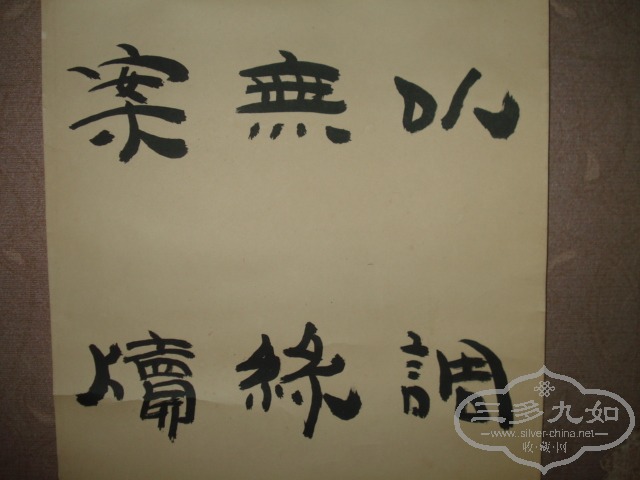 以調
無絲
案牘
三多九如
www.silver-china.net
收·藏·网